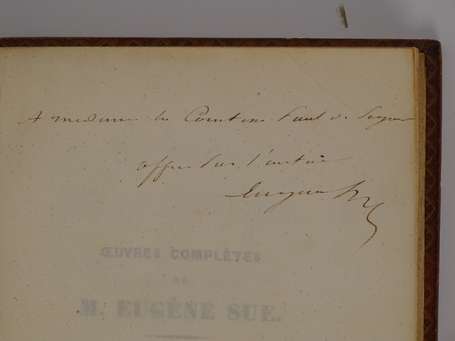 A madame la Comtesse Paul de Ségur
offert par l'auteur
Eugène Sue
ŒUVRES COMPLÈTES
DE
M. EUGÈNE SUE.